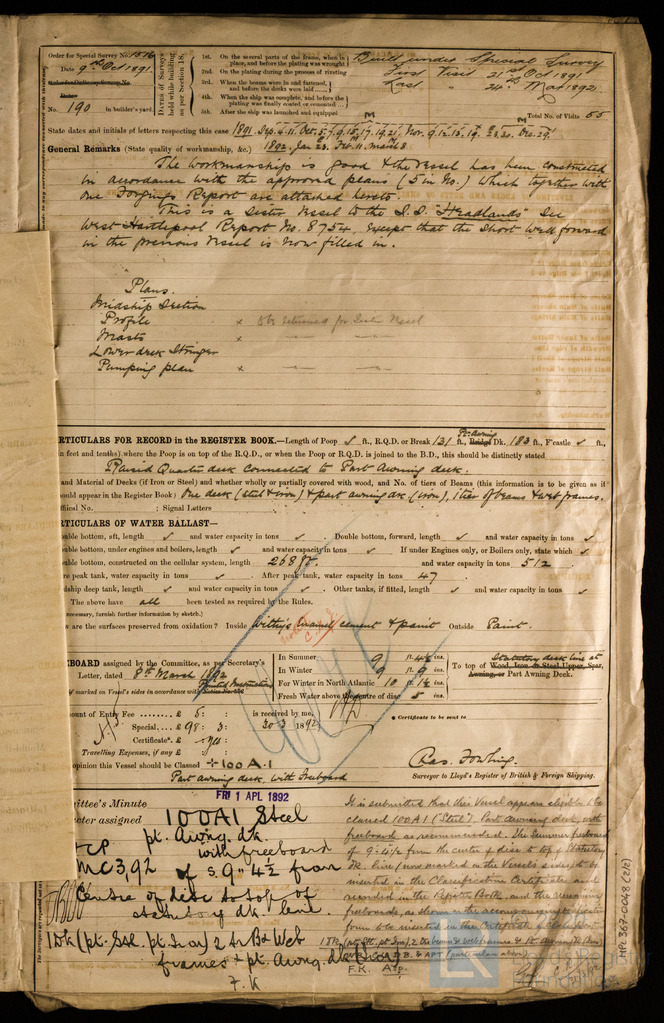 Order for Special Survey No. 1816
Date 9th Oct 1891
No. 190 in builder's yard.
DATES of Surveys held while building as per Section 18.
1st. On the several parts of the frame, when in place, and before the plating was wrought
2nd. On the plating during the process of riveting
3rd. When the beams were in and fastened, and before the decks were laid
4th. When the ship was complete, and before the plating was finally coated or cemented
5th. After the ship was launched and equipped
Built under Special Survey
First Visit 21st Oct 1891
Last " 24th Mar 1892
Total No. of Visits 55
State dates and initials of letters respecting this case 1891. Sep. 4. 11. Oct. 5. 7. 9. 15. 17. 19. 21. Nov. 9. 12. 13. 19. 23. 30. Dec. 29.
General Remarks (State quality of workmanship, &c.) 1892, Jan 23. Feb. 11. March 8
The workmanship is good & the Vessel has been constructed
in accordance with the approved plans (5 in No.) which together with
one Forgings Report are attached hereto.
This is a Sister Vessel to the S.S. "Headlands" See
West Hartlepool Report No. 8754, except that the Short Well forward
in the previous Vessel is now filled in.
Plans.
Midship Section
Profile x To be returned for Sister Vessel
Masts
Lower deck Stringer
Pumping plan x
RTICULARS FOR RECORD in the REGISTER BOOK.—Length of Poop ft., R.Q.D. or Break 131 ft., Pt. Awning Dk. 183 ft., F'castle ft.,
in feet and tenths), where the Poop is on top of the R.Q.D., or when the Poop or R.Q.D. is joined to the B.D., this should be distinctly stated
Raised Quarter deck connected to Part Awning deck.
and Material of Decks (if Iron or Steel) and whether wholly or partially covered with wood, and No. of tiers of Beams (this information is to be given as it
ould appear in the Register Book) One deck (steel & iron) & part awning dk (iron), 1 tier of beams & web frames.
fficial No. ; Signal Letters
RTICULARS OF WATER BALLAST—
ouble bottom, aft, length and water capacity in tons Double bottom, forward, length and water capacity in tons
uble bottom, under engines and boilers, length and water capacity in tons If under Engines only, or Boilers only, state which
uble bottom, constructed on the cellular system, length 268 ft. and water capacity in tons 512
re peak tank, water capacity in tons After peak tank, water capacity in tons 47
dship deep tank, length and water capacity in tons Other tanks, if fitted, length and water capacity in tons
The above have all been tested as required by the Rules.
necessary, furnish further information by sketch.)
ow are the surfaces preserved from oxidation? Inside Withy's Enamel, cement & paint Outside Paint.
EEBOARD assigned by the Committee, as per Secretary's
Letter, dated 8th March 1892
if marked on Vessel's sides in accordance with
In Summer 9 ft. 4½ ins.
In Winter 9 ft. ins.
For Winter in North Atlantic 10 ft. 1½ ins.
Fresh Water above the centre of disc 5 ins.
To top of Statutory deck line at
Wood, Iron & Steel Upper, Spar,
Awning, or Part Awning Deck.
ount of Entry Fee £ 5 : : is received by me,
Special £ 98 : 3 : 30·3 1892
Certificate* £ yes :
Travelling Expenses, if any £ :
* Certificate to be sent to
opinion this Vessel should be Classed +100A·1
Part awning deck, with Freeboard
Chas. Fowling.
Surveyor to Lloyd's Register of British & Foreign Shipping.
FRI 1 APL 1892
mittee's Minute
acter assigned 100A1 Steel
pt. Awng. dk.
with freeboard
MC 3,92 of S 9" 4½ from
Centre of disc to top of
statutory dk. line.
1 Dk (pt. Stl. pt. Iron) 2 tr Bs & Web
frames & pt. Awng. dk (Iron)
F.K
It is submitted that this Vessel appears eligible to be
classed 100A1 ("Steel"). Part Awning deck, with
freeboard, as recommended. The Summer freeboard
of 9·4½ from the center of disc to top of Statutory
dk. line (now marked on the Vessel's sides) to be
inserted in the Classification Certificate and
recorded in the Register Book, and the remaining
freeboards, as shown in the accompanying
form to be inserted in the Certificate of
F.K. Atp.
HPL 367-0048 (2/2)
LR
Lloyd's Register
Foundation